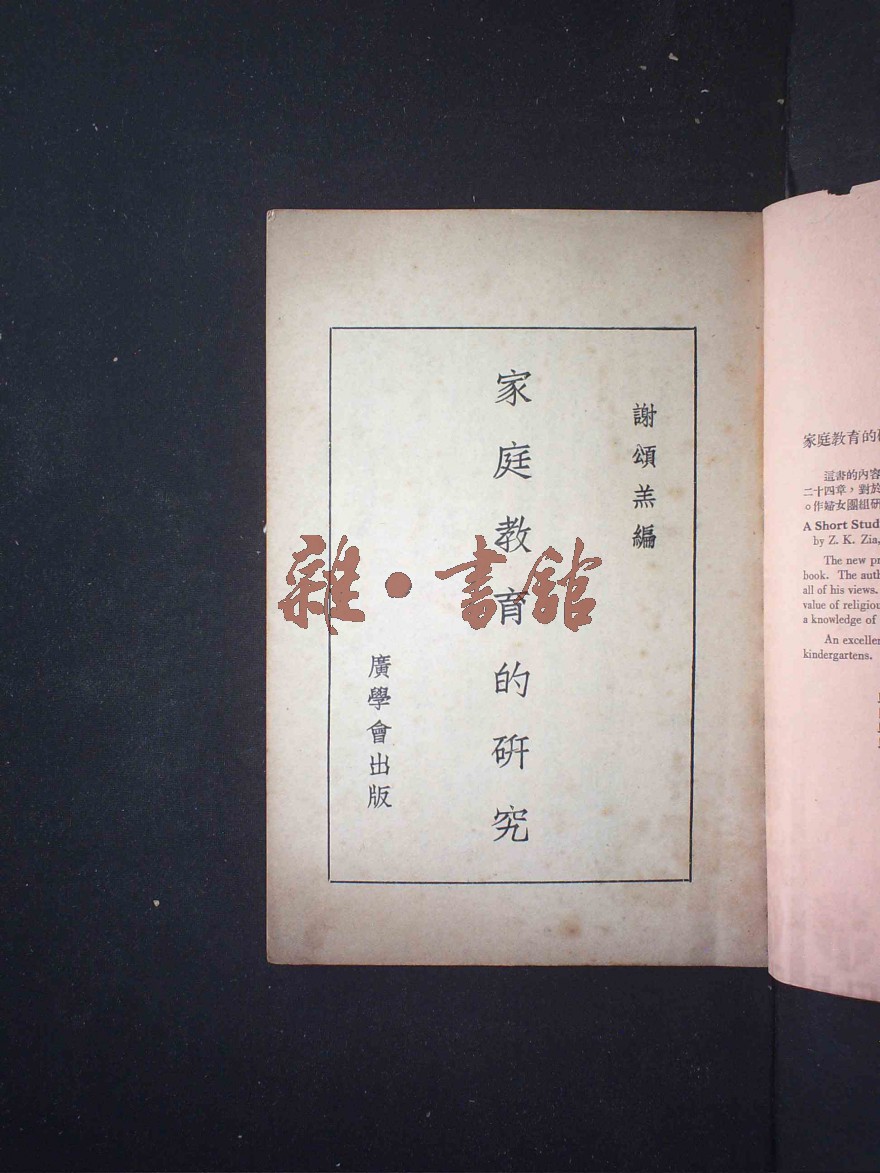 謝頌羔編
家庭教育的研究
廣學會出版
雜·書館
家庭教育的
這書的內容
二十四章，對於
。作婦女團組研
A Short Stud
by Z. K. Zia,
The new pr
book. The auth
all of his views.
value of religiou
a knowledge of
An excellen
kindergartens.